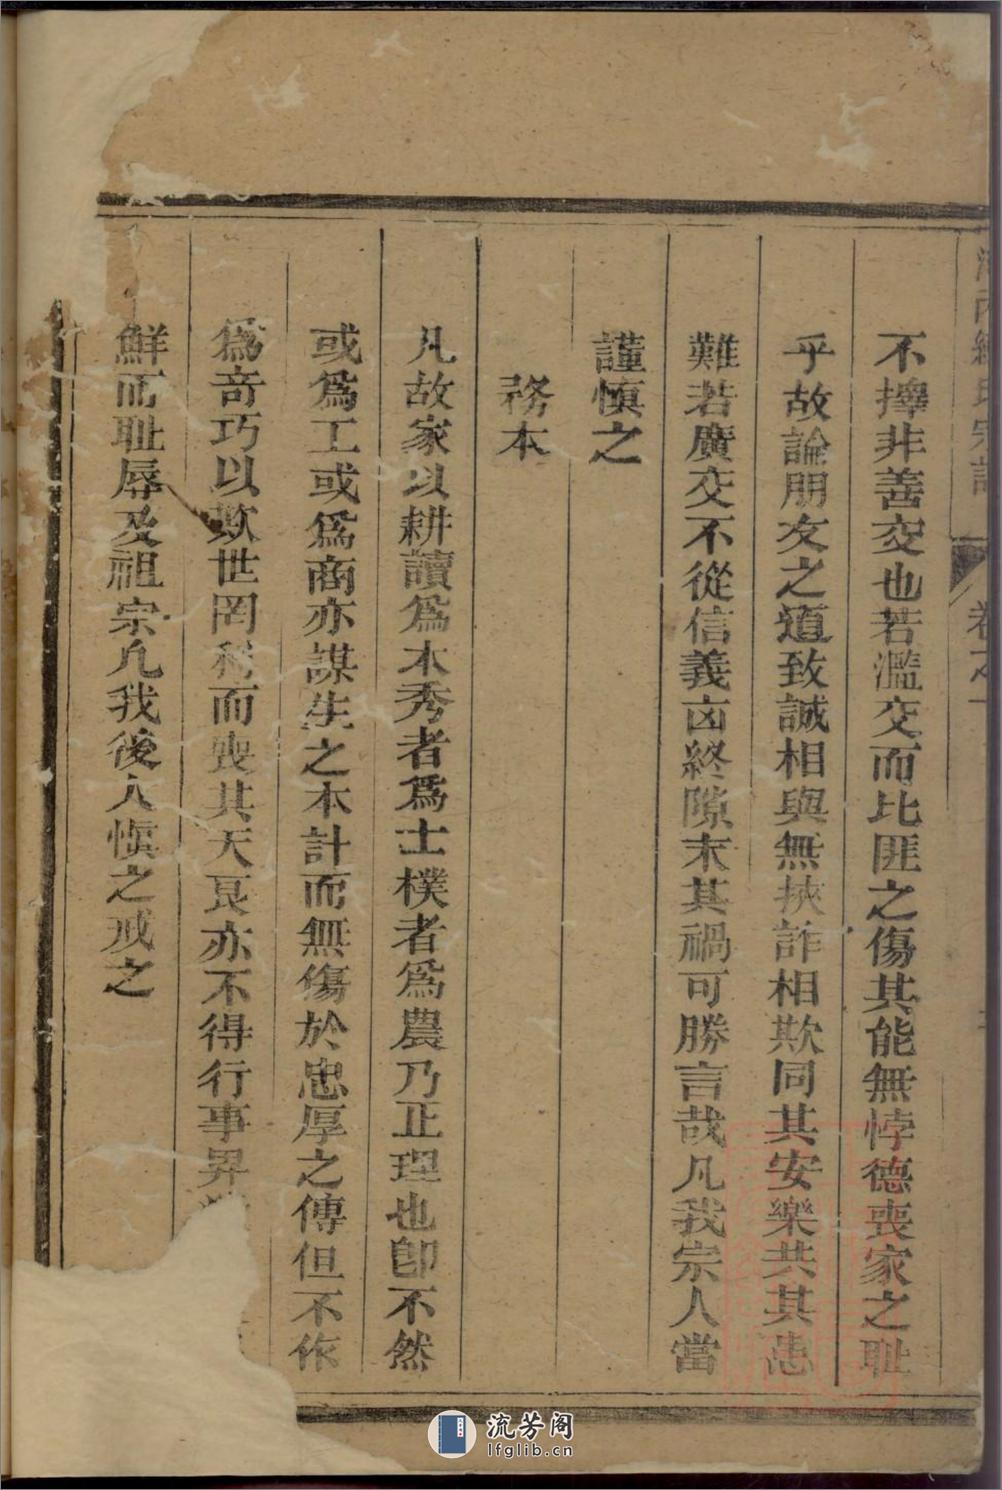 不擇非善交也若濫交而比匪之傷其能無悖德喪家之耻
乎故論朋友之道致誠相與無挾詐相欺同其安樂共其患
難若廣交不從信義凶終隙末其禍可勝言哉凡我宗人當
謹慎之
務本
凡故家以耕讀爲本秀者爲士樸者爲農乃正理也卽不然
或爲工或爲商亦謀生之本計而無傷於忠厚之傳但不作
爲竒巧以欺世罔利而喪其天良亦不得行事昇
鮮而耻辱及祖宗凡我後人慎之戒之
氏宗譜
卷之
流芳阁
lfglib.cn